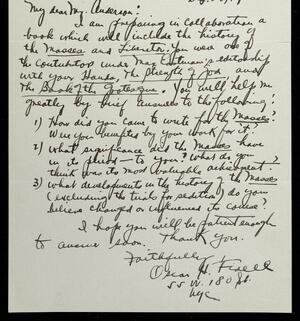 My dear Mr. Anderson:
I am preparing in collaboration a
book which will include the history of
the Masses and Liberator. You were one of
the contributors under Max Eastman's editorship
with your Hands, The Strength of God, and
The Book of the Grotesque. You will help me
greatly by brief answers to the following:
1) How did you came to write for the Masses?
Were you by your work for it?
2) What significance did the Masses have
in its period — to you? What do you
think was its most valuable achievement?
3) What developments in the history of the Masses
(excluding the trials for sedition) do you
believe changed or influenced its course?
I hope you will be patient enough
to answer soon. Thank you.
Faithfully
Oscar H.
55 W. 180 St.
NYC